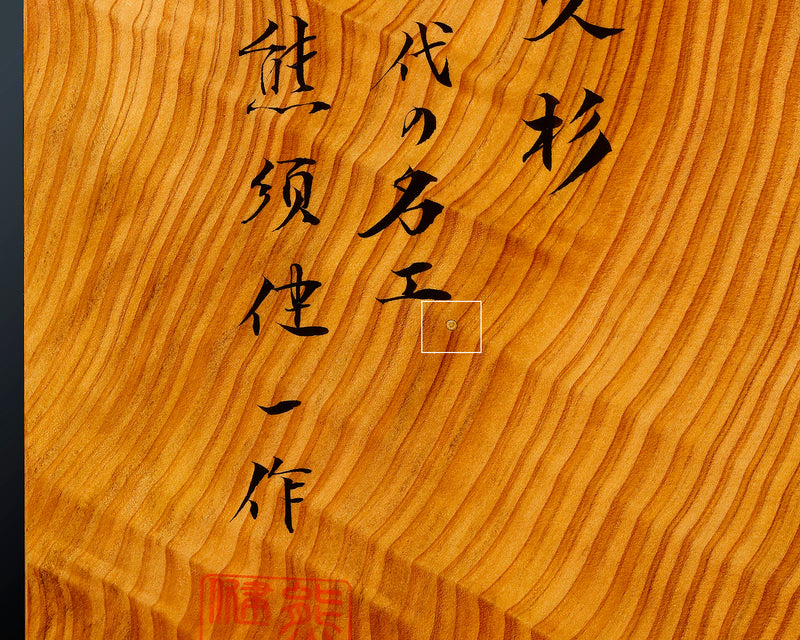 久杉
代の名工
熊須健一作
熊